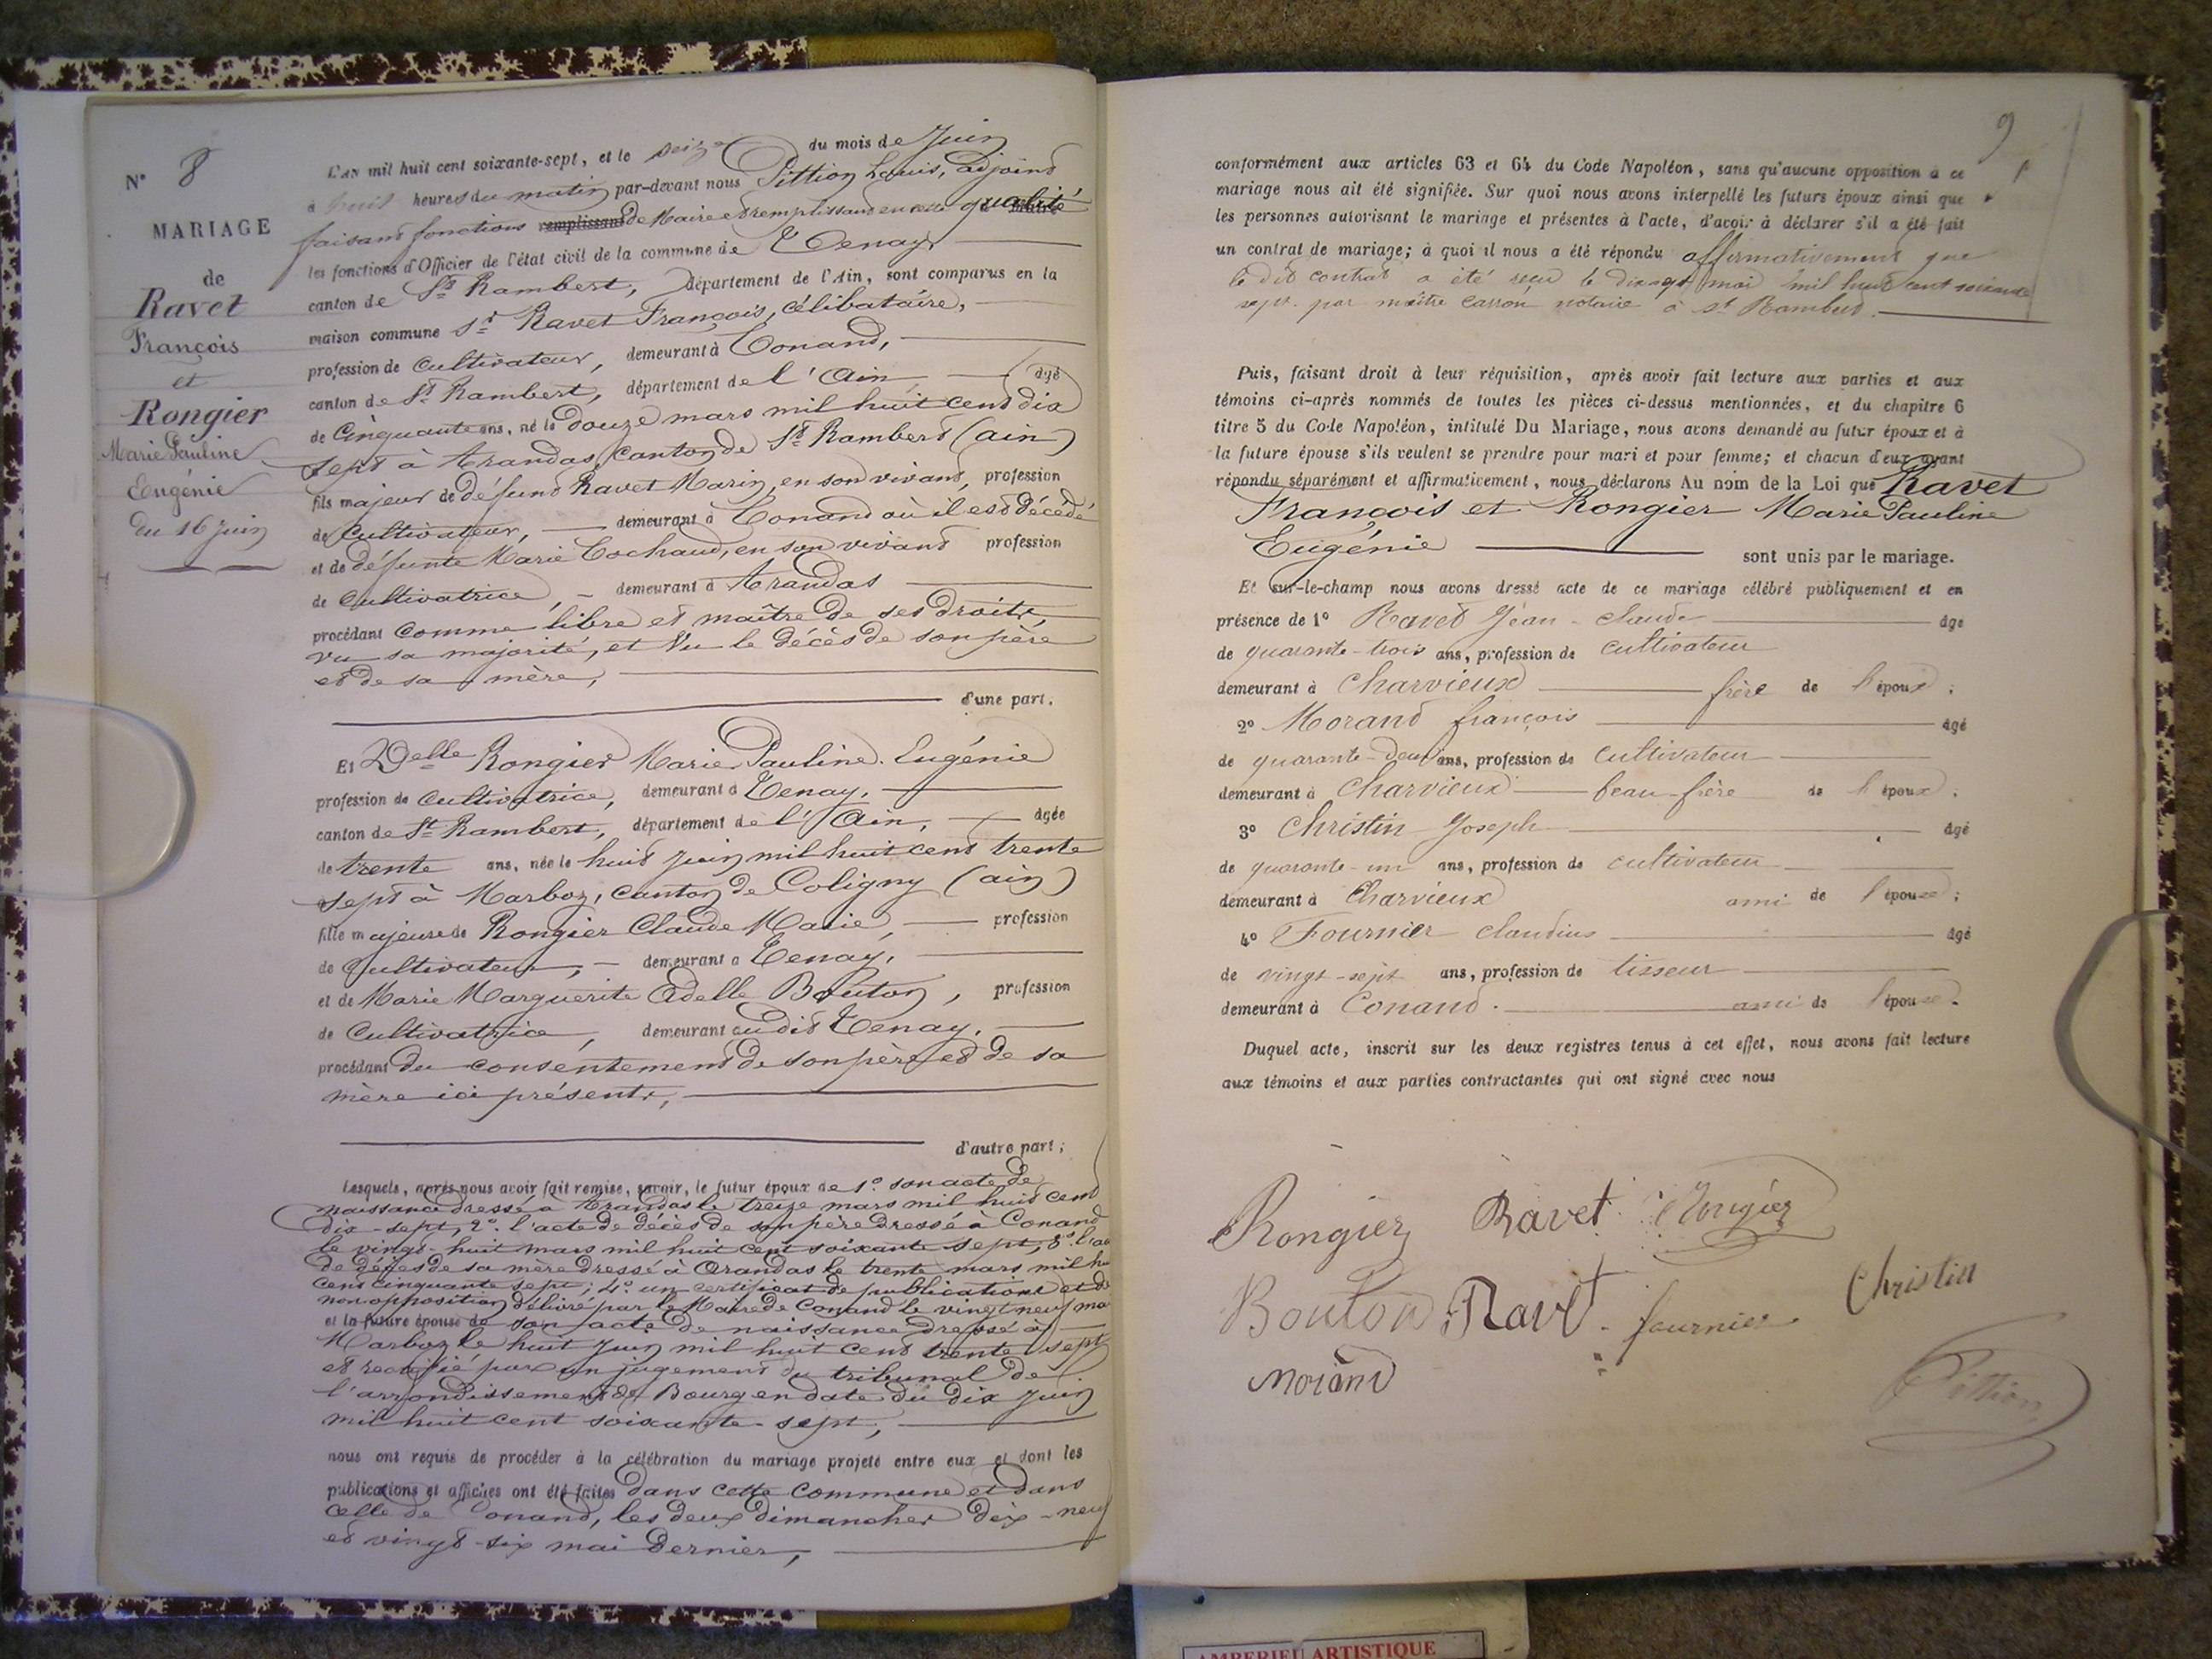 N° 8
MARIAGE
de
Ravet
François
et
Rongier
Marie Pauline
Eugénie
du 16 juin
L'an mil huit cent soixante-sept, et le seize du mois de Juin
à huit heures du matin par-devant nous Pittion Louis, adjoint
faisant fonctions remplissant de Maire et remplissant en cette qualité
les fonctions d'Officier de l'état civil de la commune de Tenay,
canton de St Rambert, département de l'Ain, sont comparus en la
maison commune Sr Ravet François, célibataire,
profession de Cultivateur, demeurant à Conand,
canton de St Rambert, département de l'Ain âgé
de Cinquante ans, né le douze mars mil huit cent dix
sept à Arandas, canton de St Rambert (ain)
fils majeur de défunt Ravet Marin, en son vivant, profession
de Cultivateur, demeurant à Conand où il est décédé
et de défunte Marie Cochaud, en son vivant profession
de Cultivatrice, demeurant à Arandas
procédant comme libre et maître de ses droits,
vu sa majorité, et Vu le décès de son père
et de sa mère,
d'une part.
Et Delle Rongier Marie Pauline Eugénie
profession de Cultivatrice, demeurant à Tenay,
canton de St Rambert, département de l'Ain, âgée
de trente ans, née le huit juin mil huit cent trente
sept à Marboz, canton de Coligny (ain)
fille majeure de Rongier Claude Marie, profession
de Cultivateur, demeurant à Tenay,
et de Marie Marguerite Adelle Bouton, profession
de Cultivatrice, demeurant au dit Tenay.
procédant du consentement de son père et de sa
mère ici présents,
d'autre part;
Lesquels, après nous avoir fait remise, savoir, le futur époux de 1° son acte de
naissance dressé à Arandas le treize mars mil huit cent
dix-sept, 2° l'acte de décès de son père dressé à Conand
le vingt-huit mars mil huit cent soixante sept, 3°
de décès de sa mère dressé à Arandas le trente mars mil
cent cinquante sept; 4° un certificat de publications et de
non opposition délivré par le Maire de Conand le vingt neuf
et la future épouse de son acte de naissance dressé à
Marboz le huit Juin mil huit cent trente sept
et rectifié par un jugement du tribunal de
l'arrondissement de Bourg en date du dix Juin
mil huit cent soixante-sept,
nous ont requis de procéder à la célébration du mariage projeté entre eux et dont les
publications et affiches ont été faites dans cette commune et dans
celle de Conand, les deux dimanches dix-neuf
et vingt-six mai dernier,
9
conformément aux articles 63 et 64 du Code Napoléon, sans qu'aucune opposition à ce
mariage nous ait été signifiée. Sur quoi nous avons interpellé les futurs époux ainsi que
les personnes autorisant le mariage et présentes à l'acte, d'avoir à déclarer s'il a été fait
un contrat de mariage; à quoi il nous a été répondu affirmativement que
le dit contrat a été reçu le mai mil huit cent soixante
sept. par maître Carron notaire à St Rambert.
Puis, faisant droit à leur réquisition, après avoir fait lecture aux parties et aux
témoins ci-après nommés de toutes les pièces ci-dessus mentionnées, et du chapitre 6
titre 5 du Code Napoléon, intitulé Du Mariage, nous avons demandé au futur époux et à
la future épouse s'ils veulent se prendre pour mari et pour femme; et chacun d'eux ayant
répondu séparément et affirmativement, nous déclarons Au nom de la Loi que Ravet
François et Rongier Marie Pauline
Eugénie sont unis par le mariage.
Et sur-le-champ nous avons dressé acte de ce mariage célébré publiquement et en
présence de 1° Ravet Jean-claude âgé
de quarante-trois ans, profession de cultivateur
demeurant à Charvieux frère de l'époux;
2° Morand françois âgé
de quarante-deux ans, profession de cultivateur
demeurant à Charvieux beau-frère de l'époux;
3° Christin Joseph âgé
de quarante-un ans, profession de cultivateur
demeurant à Charvieux ami de l'épouse;
4° Fournier claudius âgé
de vingt-sept ans, profession de tisseur
demeurant à Conand. ami de l'épouse.
Duquel acte, inscrit sur les deux registres tenus à cet effet, nous avons fait lecture
aux témoins et aux parties contractantes qui ont signé avec nous
Rongier Ravet Rongier
Bouton Ravet fournier Christin
Morand Pittion
AMBERIEU ARTISTIQUE